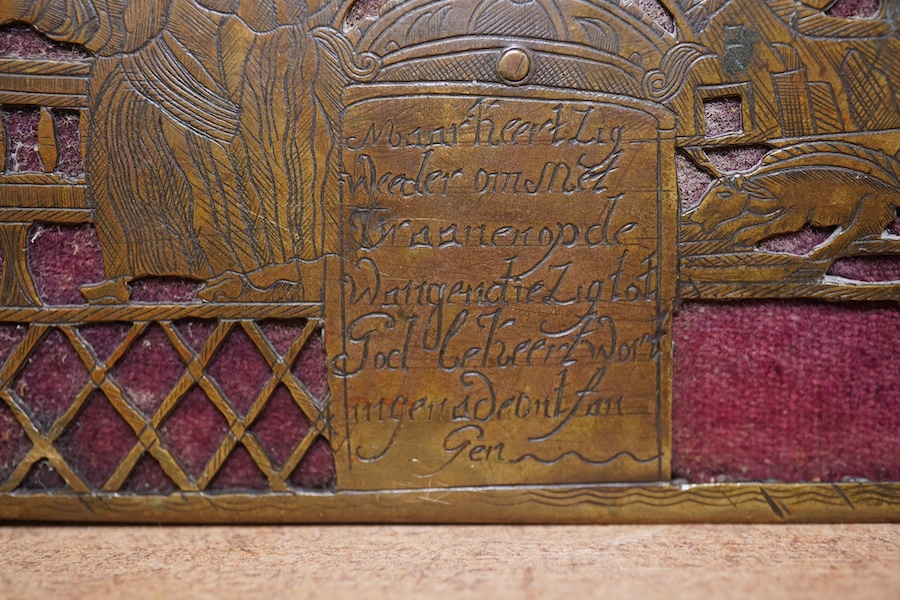 Maar keert Zig
Weeder om Met
Traanen op de
Wangen die Zig tot
God bekeert Wort
in genade ontfan
Gen